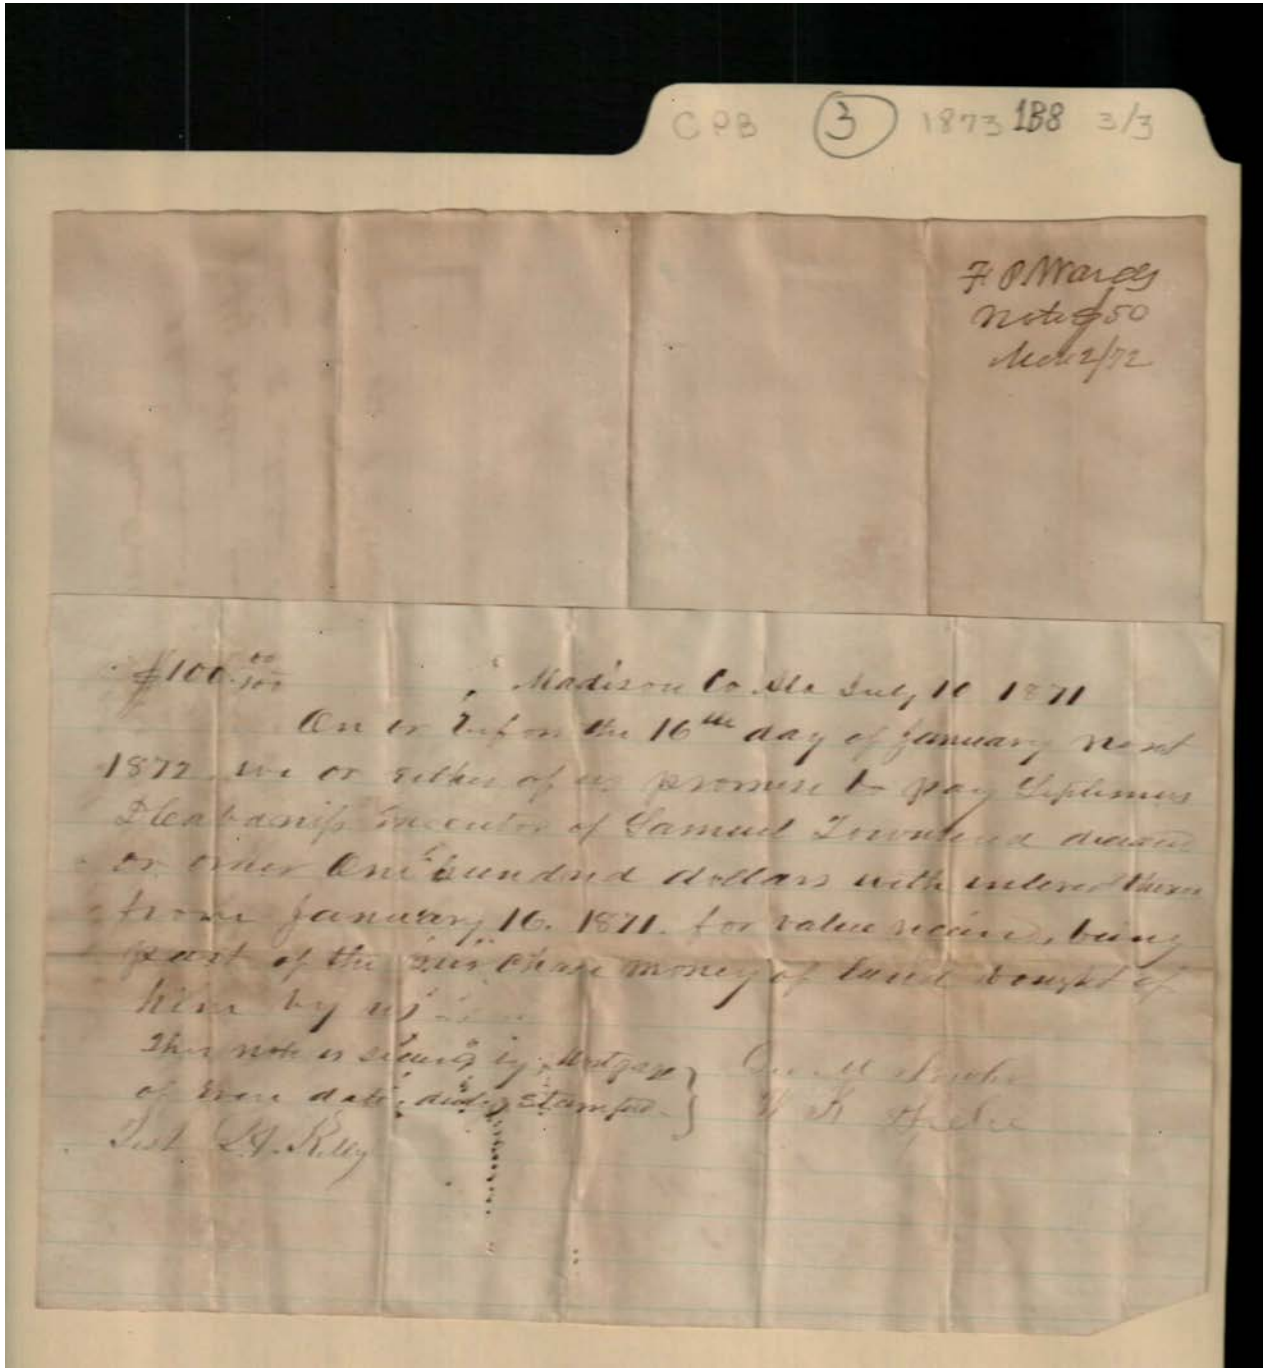 CPB 3 1873 188 3/3
F. P. Wards
Note $50
2/72
$100.00/100 Madison Co Ala July 10 1871
On or before the 16th day of January next
1872 we or either of us promise to pay Septimus
D Cabaniss Executor of Samuel Townsend deceased
or order One hundred dollars with interest thereon
from January 16. 1871. for value received, being
part of the purchase money of land bought of
him by us
This note is secured by Mortgage
of even date duly stamped
Test L. A. Kelly